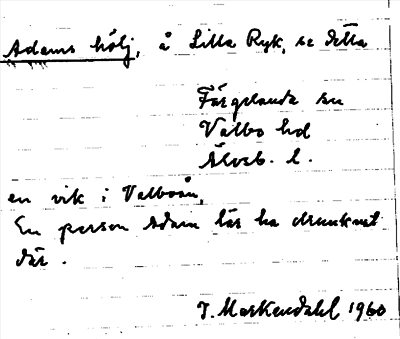 Adams hölj, å Lilla Ryk, se detta
Färgelanda sn
Valbo hd
Älvsb. l.
en vik i Valboån.
En person Adam lär ha drunknat
där.
J. Markendahl 1960